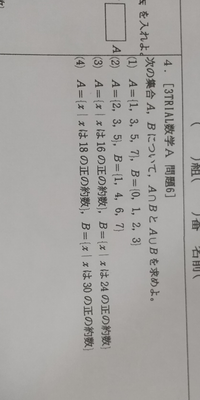 ( )組( )番 名前(
4．[3TRIAL数学A 問題6]
次の集合 A，B について，A∩B と A∪B を求めよ。
(1) A={1, 3, 5, 7}，B={0, 1, 2, 3}
(2) A={2, 3, 5}，B={1, 4, 6, 7}
(3) A={x | x は 16 の正の約数}，B={x | x は 24 の正の約数}
(4) A={x | x は 18 の正の約数}，B={x | x は 30 の正の約数}
を入れよ。
A